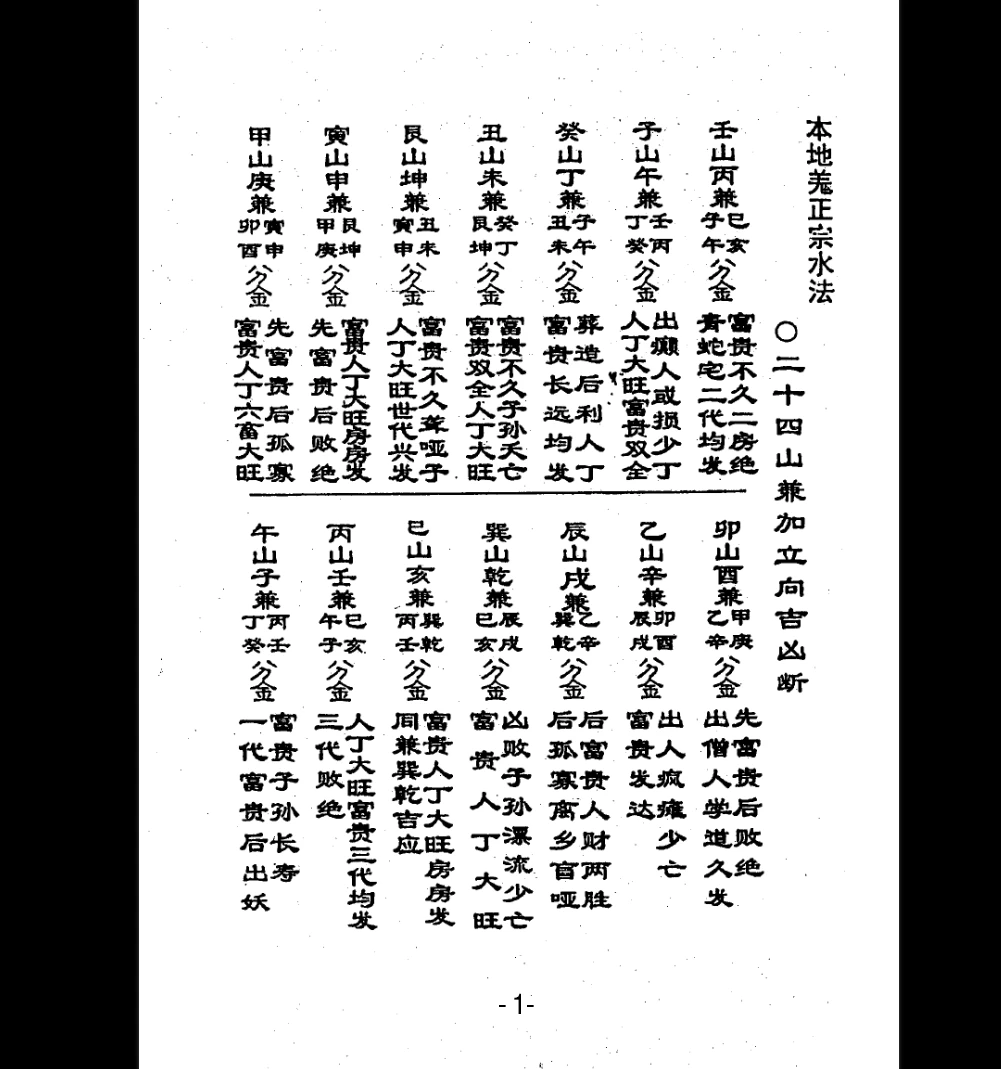 本地羗正宗水法
○二十四山兼加立向吉凶断
壬山丙兼
巳亥
子午
分金
富贵不久二房绝
青蛇宅二代均发
子山午兼
壬丙
丁癸
分金
出癫人或损少丁
人丁大旺富贵双全
癸山丁兼
子午
丑未
分金
葬造后利人丁
富贵长远均发
丑山未兼
癸丁
艮坤
分金
富贵不久子孙夭亡
富贵双全人丁大旺
艮山坤兼
丑未
寅申
分金
富贵不久聋哑子
人丁大旺世代兴发
寅山申兼
艮坤
甲庚
分金
富贵人丁大旺房房发
先富贵后败绝
甲山庚兼
寅申
卯酉
分金
先富贵后孤寡
富贵人丁六畜大旺
卯山酉兼
甲庚
乙辛
分金
先富贵后败绝
出僧人学道久发
乙山辛兼
卯酉
辰戌
分金
出人疯瘫少亡
富贵发达
辰山戌兼
乙辛
巽乾
分金
后富贵人财两胜
后孤寡离乡盲哑
巽山乾兼
辰戌
巳亥
分金
凶败子孙漂流少亡
富贵人丁大旺
巳山亥兼
巽乾
丙壬
分金
富贵人丁大旺房房发
同兼巽乾吉应
丙山壬兼
巳亥
午子
分金
人丁大旺富贵三代均发
三代败绝
午山子兼
丙壬
丁癸
分金
富贵子孙长寿
一代富贵后出妖
-1-